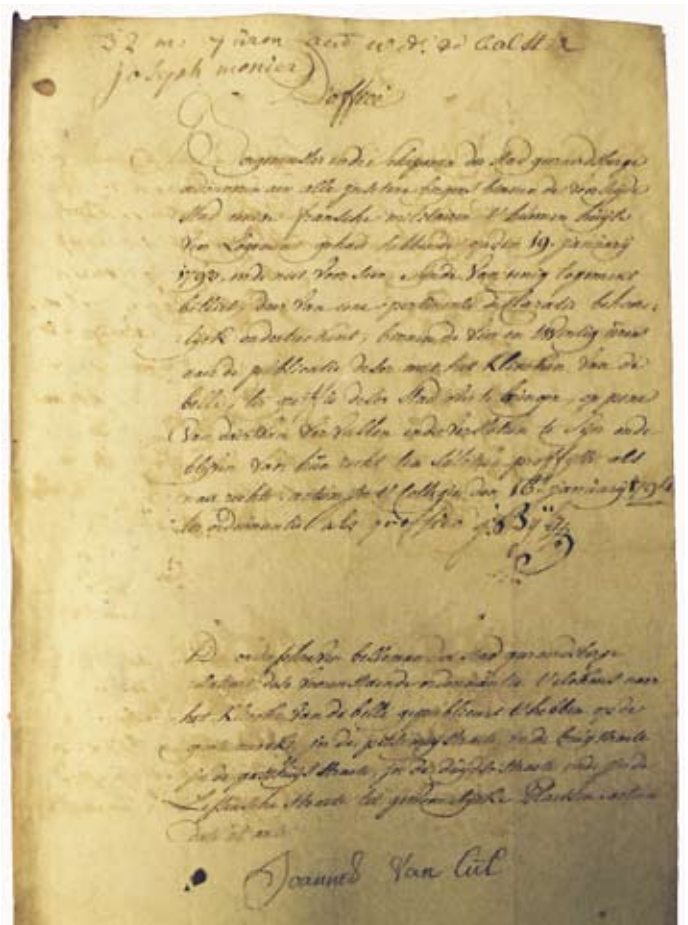 joseph monier
D'office
Borgemeester ende schepenen der stad geeraerdsberge
alle binnen de voorseyde
Stad eenige fransche militairen t'hunnen huyse
van Logement gehad hebbende op den 19. january
1793. ende niet voorsien synde van eenig logement
billiet, daer van eene pertinente declaratie behoor-
lyck onderteekent, binnen de vier en twintig uren
naer de publicatie deser met het klincken van de
belle, ter greffie deser stad over te bringen, op pene
van daer van vervallen ende versteken te syn ende
blyven van hun recht ten proffytte als
naer rechte. actum in 't Collegie den 16en january
ter ordonnantie als greffier
D'onderschreven belleman der stad geeraerdsberge
relateert dese voorenstaende ordonnantie naer
het klincken van de belle gepubliceert t'hebben op de
groote marckt, in de straete in de straete
in de gasthuys straete, in de straete ende in de
Lessensche straete tot plaetsen actum
date ut ante
Joannes Van Cut